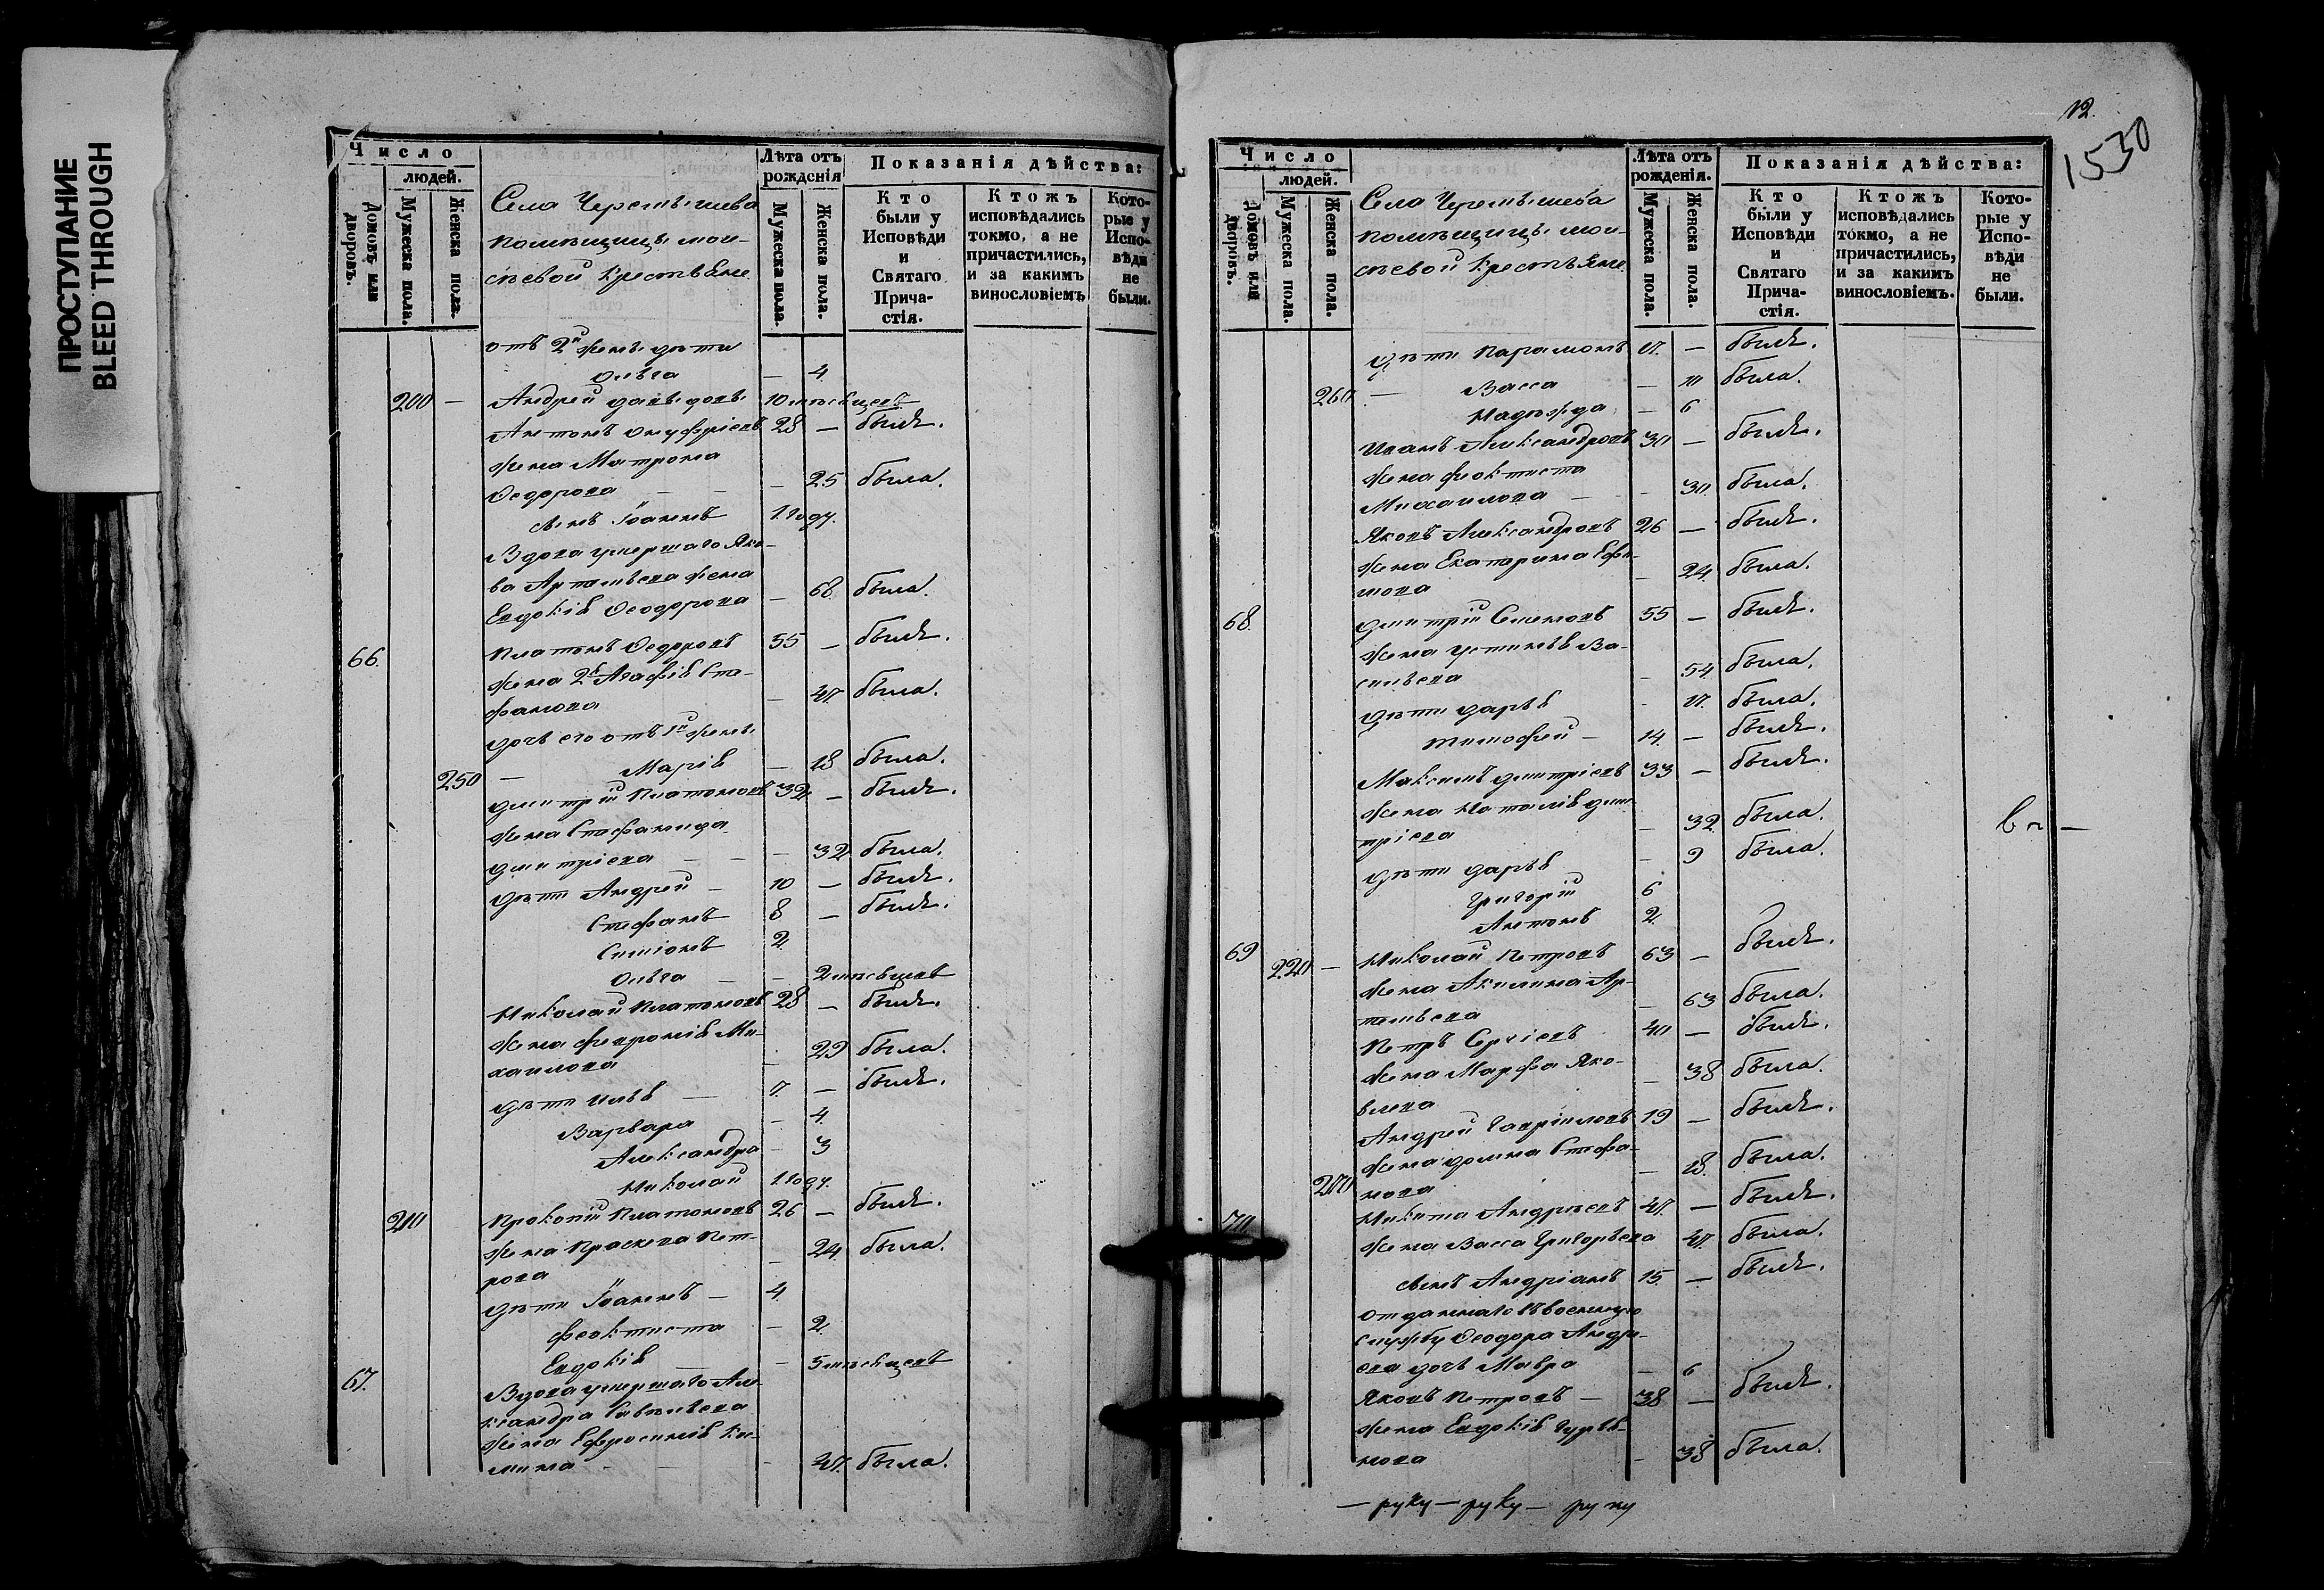 ПРОСТУПАНИЕ
BLEED THROUGH
Число
людей.
Домовъ или дворовъ.
Мужеска пола.
Женска пола.
Села Черемышева
помѣщицы мои-
сѣевой крестьяне
Лѣта отъ рожденія
Мужеска пола.
Женска пола.
Показанія дѣйства:
Кто были у Исповѣди и Святаго Прича-стія.
Ктожъ исповѣдались токмо, а не причастились, и за какимъ винословіемъ
Кото-рые у Испо-вѣди не были.
отъ 2й жены дѣти
Ольга — 4.
200 — Андрей Давыдовъ 10 мѣсяцевъ
Антонъ Онуфріевъ 28 — былъ.
жена Матрона
Ѳедорова — — — 25 была.
сынъ Іоаннъ 1 году.
Вдова умершаго Яко-
ва Артемьева жена
Евдокія Ѳеодорова — 68. была.
66. Платонъ Ѳедоровъ 55 — былъ.
жена 2я Агафія Сте-
фанова — 47. была.
дочь его отъ 1й жены
250 — Марія — 18 была.
Дмитрій Платоновъ 32 — былъ.
жена Стефанида
Дмитріева — — — 32 была.
дѣти Андрей — 10 — былъ.
Стефанъ 8 — былъ.
Симіонъ 2.
Ольга — 2 мѣсяцевъ
Николай Платоновъ 28 — былъ.
жена Февронія Ми-
хаилова — 29 была.
дѣти Илья — 7. — былъ.
Варвара — 4.
Александра — 3
Николай 1 году.
210 Прокопій Платоновъ 26 — былъ.
жена Праскева Пет-
рова — 24. была.
дѣти Іоаннъ — 4.
Феоктиста — 2.
Евдокія — 5 мѣсяцевъ
67. Вдова умершаго Але-
ксандра Савельева
жена Ефросинія Ки-
лина — — — 47. была.
12.
1530
Число
людей.
Домовъ или дворовъ.
Мужеска пола.
Женска пола.
Села Черемышева
помѣщицы мои-
сѣевой крестьяне
Лѣта отъ рожденія.
Мужеска пола.
Женска пола.
Показанія дѣйства:
Кто были у Исповѣди и Святаго Прича-стія.
Ктожъ исповѣдались токмо, а не причастились, и за какимъ винословіемъ.
Кото-рые у Испо-вѣди не были.
дѣти Парамонъ 17. — былъ.
260 — Васса — 10 была.
Надѣжда — 6
Иванъ Александровъ 30 — былъ.
жена Феоктиста
Михаилова — — 30. была.
Яковъ Александровъ 26 — былъ.
жена Екатерина Ефи-
мова — 24. была.
68. Дмитрій Семеновъ 55 — былъ.
жена Устинья Ва-
сильева — 54 была.
дѣти Дарья — 17. была.
Тимофей — 14. — былъ.
Максимъ Дмитріевъ 33 — былъ.
жена Наталія Дми-
тріева — 32 была.
дѣти Дарья — 9 была.
Григорій 6
Антонъ 2.
69 220 — Николай Петровъ 63 — былъ.
жена Акилина Ар-
темьева — 63 была.
Петръ Сергіевъ 40 — былъ.
жена Марфа Яко-
влева — 38 была.
Андрей Гавріиловъ 19 — былъ.
жена Домна Стефа-
270 нова — 18. была.
70. Никита Андреевъ 47. — былъ.
жена Васса Григорьева 47. была.
сынъ Андріанъ 15 — былъ.
отданнаго въ военную
службу Ѳеодора Андре-
ева дочь Мавра — 6
Яковъ Петровъ — 38 — былъ.
жена Евдокія Гурья-
нова — 38 была.
— руку — руку — руку